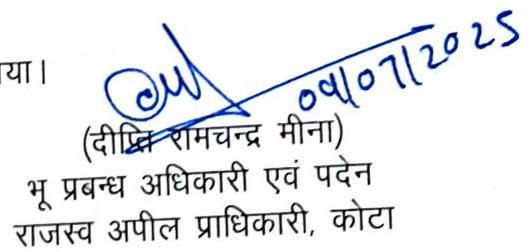 या।
09/07/2025
(दीप्ति रामचन्द्र मीना)
भू प्रबन्ध अधिकारी एवं पदेन
राजस्व अपील प्राधिकारी, कोटा